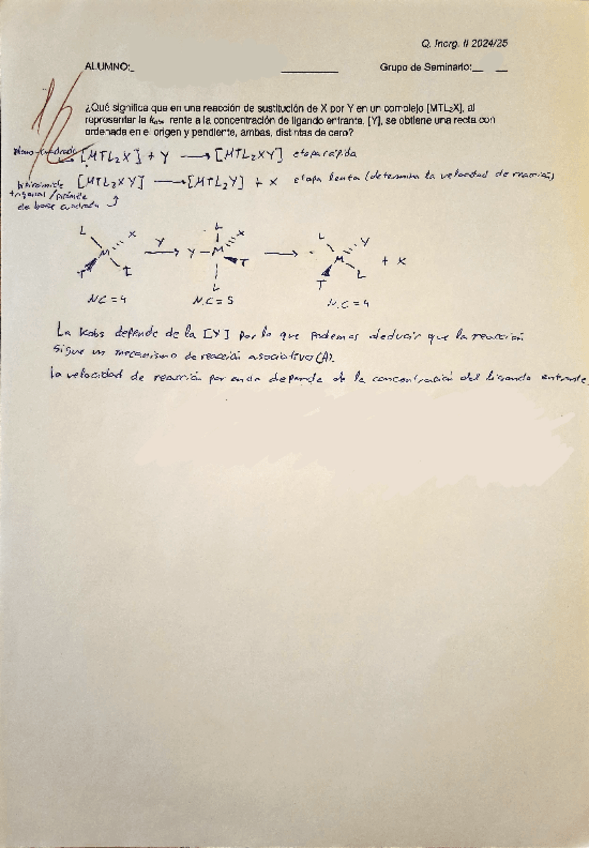 Q. Inorg. II 2024/25
ALUMNO:_ Grupo de Seminario:__ __
¿Qué significa que en una reacción de sustitución de X por Y en un complejo [MTL₂X], al
representar la kobs rente a la concentración de ligando entrante, [Y], se obtiene una recta con
ordenada en el origen y pendiente, ambas, distintas de cero?
plano-cuadrado [MTL₂X] + Y → [MTL₂XY] etapa rápida
bipirámide [MTL₂XY] → [MTL₂Y] + X etapa lenta (determina la velocidad de reacción)
trigonal/pirámide
de base cuadrada
L X Y L X L Y
M → Y M → M + X
T L L T T L
N.C = 4 N.C = 5 N.C = 4
La Kobs depende de la [Y] por lo que podemos deducir que la reacción
sigue un mecanismo de reacción asociativo (A).
La velocidad de reacción por ende depende de la concentración del ligando entrante.